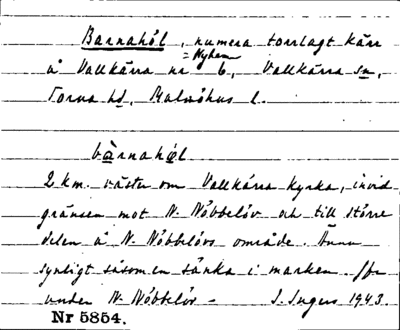 Barnahól, numera torrlagt kärr
= Nyhem
å Vallkärra nr 6, Vallkärra sn,
Torna hd, Malmöhus l.
bàrnahọl
2 km. väster om Vallkärra kyrka, invid
gränsen mot N. Nöbbelöv och till större
delen å N. Nöbbelövs område. Ännu
synligt såsom en sänka i marken. Jfr
under N. Nöbbelöv – J. Ingers 1943.
Nr 5854.